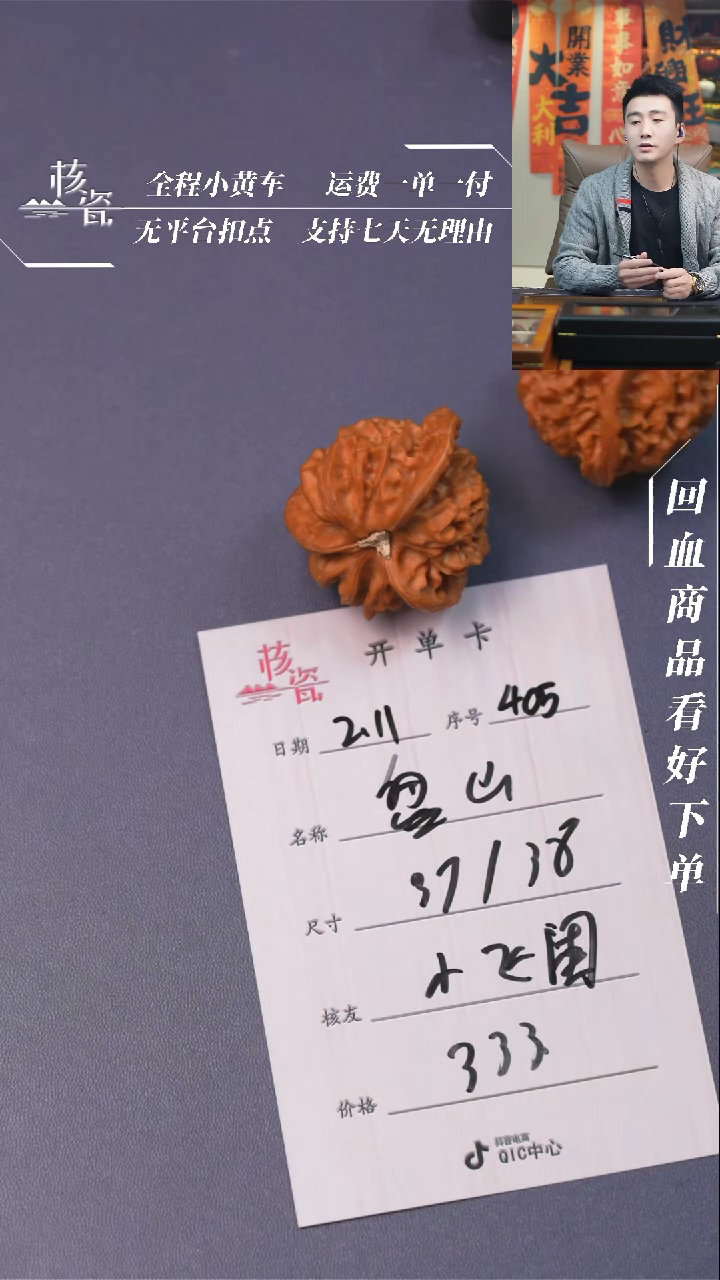 核瓷
全程小黄车 运费一单一付
无平台扣点 支持七天无理由
開業
大吉
大利
事事如意
回血商品看好下单
核瓷
开单卡
日期 2.11 序号 405
名称 盘山
尺寸 37/38
核友 小飞周
价格 333
抖音电商
QIC中心